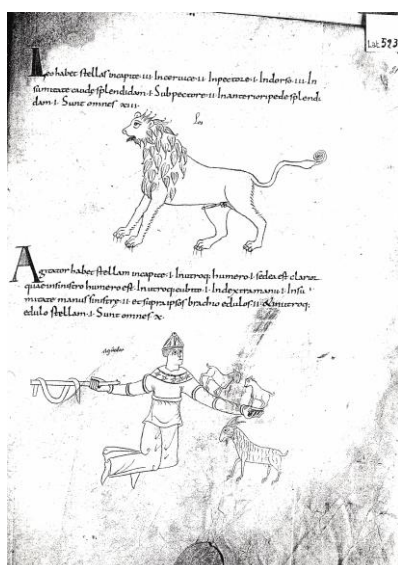 Lat. 5239
Leo habet stellas incapite·III·Incervice·II·Inpectore·I·Indorso·III·In
sumitate caude splendidam·I·Subpectore·II·Inanterioripede splendi
dam·I·Sunt omnes XIII·
Leo
Agitator habet stellam incapite·I·Inutroq; humero·I·sedea est clarior
quae insinistro humero est·Inutroq; cubito·I·Indextra manu·I·Insu
mitate manus sinistrę·II·et supra ipso brachio edulos·II·&inutroq;
edulo stellam·I·Sunt omnes X·